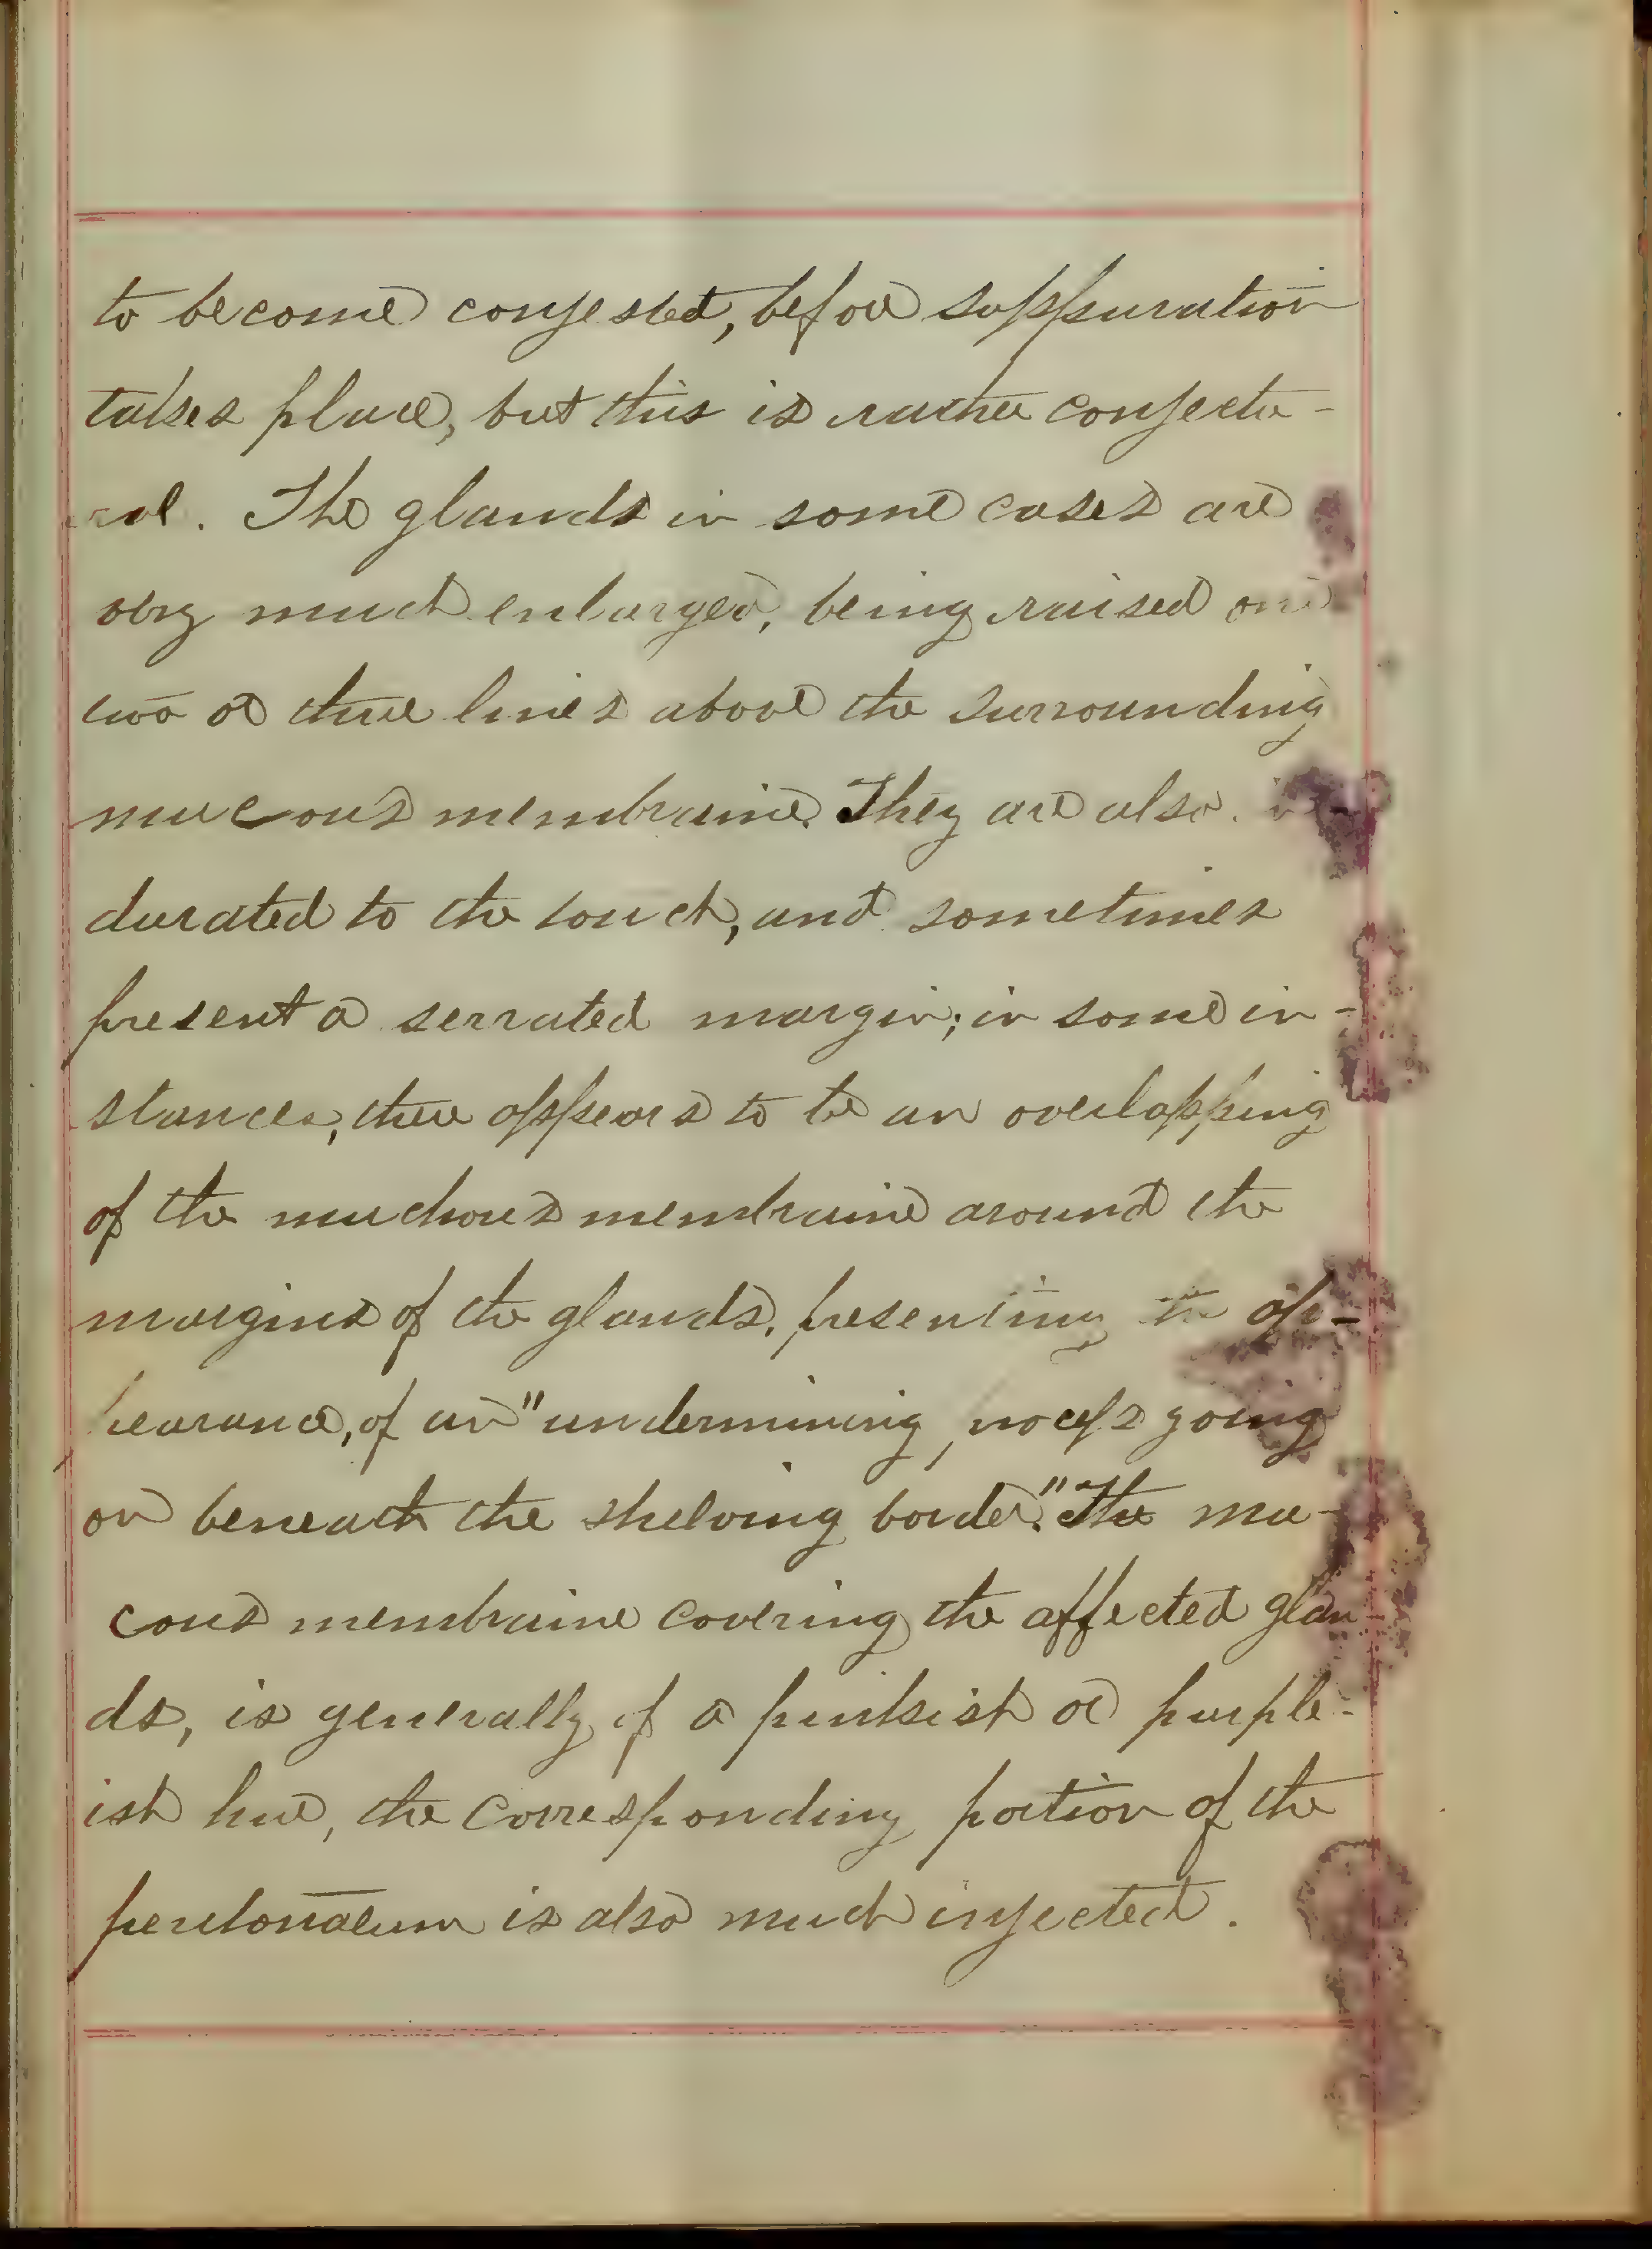 to become conjested, before suppuration
takes place, but this is rather conjectu-
ral. The glands in some cases are
very much enlarged, being raised one
two or three lines above the surrounding
mucous membraine. They are also in-
durated to the touch, and sometimes
present a serrated margin; in some in-
stances, there appears to be an overlapping
of the muchous membraine around the
margins of the glands, presenting the ap-
pearance, of an "undermining going
on beneath the shelving border." The mu-
cous membraine covering the affected glan-
ds, is generally of a pinkish or purple-
ish hue, the corresponding portion of the
peritonaeum is also much injected.